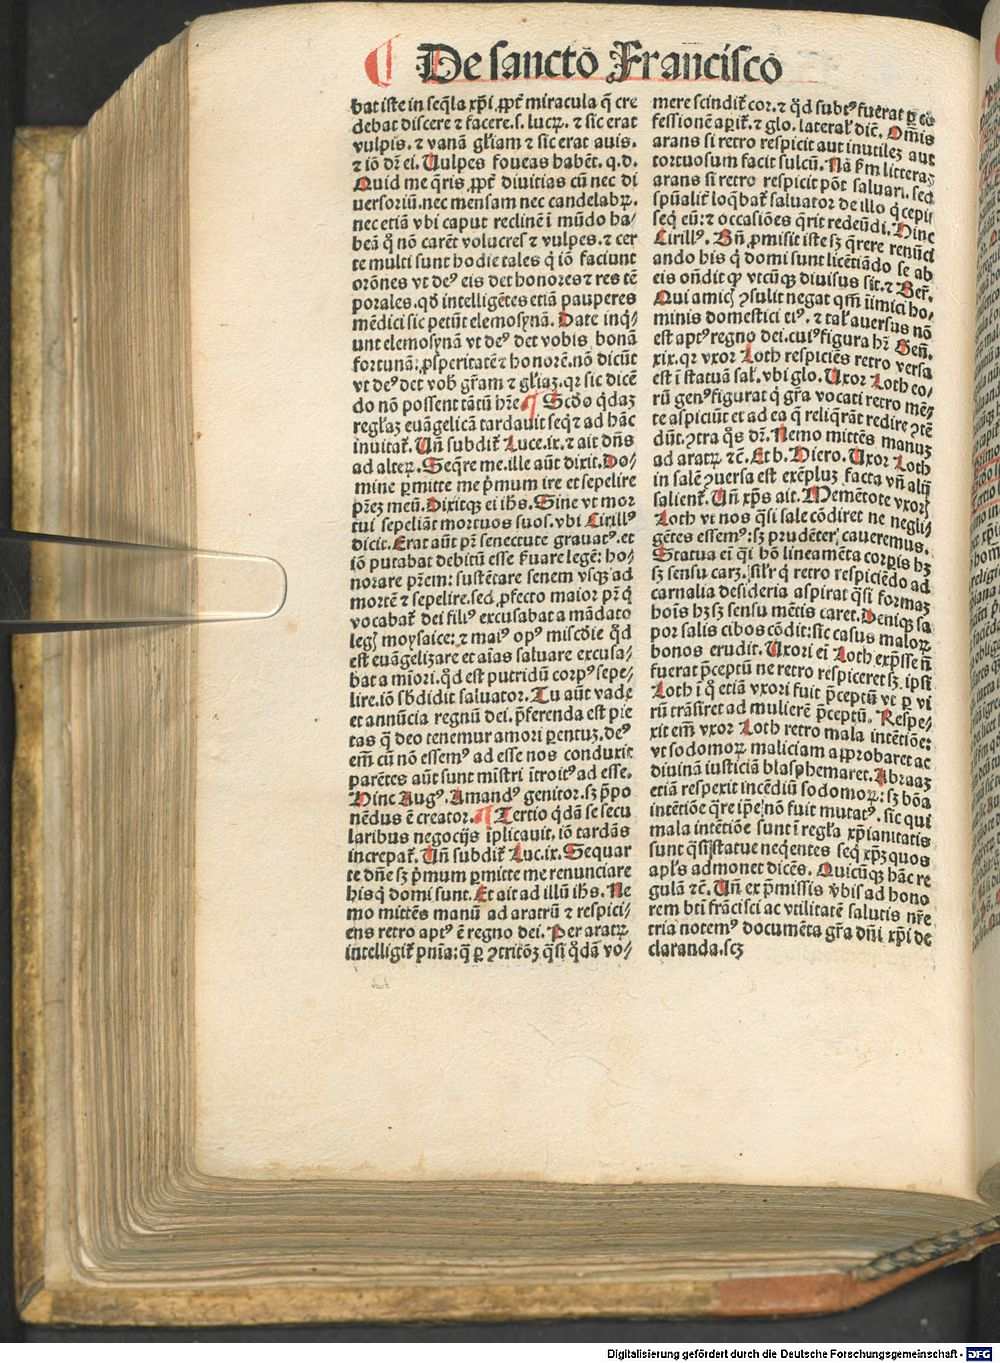 De sancto Francisco
bat iste in seq̃la xp̃i ꝓpt̃ miracula q̃ cre
debat discere ⁊ facere.s. lucꝝ. ⁊ sic erat
vulpis. ⁊ vanã gl̃iam ⁊ sic erat auis.
⁊ iõ dr̃ ei. Uulpes foueas habẽt. q.d.
Quid me q̃ris ꝓpt̃ diuitias cũ nec di
uersoriũ.nec mensam nec candelabꝝ.
nec etiã vbi caput reclinẽ ĩ mũdo ha⸗
beã q̊ nõ carẽt volucres ⁊ vulpes. ⁊ cer
te multi sunt hodie tales q̇ iõ faciunt
orõnes vt deꝰ eis det honores ⁊ res tẽ
porales.qđ intelligẽtes etiã pauperes
mẽdici sic petũt elemosynã. Date inq̇⸗
unt elemosynã vt deꝰ det vobis bonã
fortunã: ꝓsperitatẽ ⁊ honorẽ.nõ dicũt
vt deꝰ det vob̃ gr̃am ⁊ gl̃iaꝫ.qꝛ sic dicẽ
do nõ possent tãtũ hr̃e. ¶ Scđo q̇daꝫ
regl̃aꝫ euãgelicã tardauit seq̇ ⁊ ad hãc
inuitat̃. Uñ subdit̃ Luce.ix. ⁊ ait dñs
ad alteꝝ. Seq̃re me.ille aũt dixit. Do⸗
mine ꝑmitte me p̃mum ire et sepelire
pr̃eꝫ meũ. Dixitqꝫ ei ih̃s. Sine vt mor
tui sepeliãt mortuos suos. vbi Cirillꝰ
dicit. Erat aũt pr̃ senectute grauatꝰ. et
iõ putabat debitũ esse ẜuare legẽ: ho⸗
norare pr̃em: sustẽtare senem vsqꝫ ad
mortẽ ⁊ sepelire.sed ꝓfecto maior pr̃ q̇
vocabat̃ dei filiꝰ excusabat a mãdato
legꝭ moysaice: ⁊ maiꝰ opꝰ misc̃đie q̊d
est euãgelizare et aĩas saluare excusa⸗
bat a mĩori.q̊d est putridũ corpꝰ sepe⸗
lire.iõ sb̃didit saluator. Tu aũt vade
et annũcia regnũ dei. p̃ferenda est pie
tas q̃ deo tenemur amori ꝑentuꝫ.deꝰ
em̃ cũ nõ essemꝰ ad esse nos conduxit
parẽtes aũt sunt mĩstri ĩtroitꝰ ad esse.
Hinc Augꝰ. Amandꝰ genitor.sꝫ p̃po
nẽdus ẽ creator. ¶ Tertio q̇dã se secu
laribus negocijs ĩplicauit. iõ tardãs
increpat̃. Uñ subdit̃ Luc.ix. Sequar
te dñe sꝫ p̃mum ꝑmitte me renunciare
his q̇ domi sunt. Et ait ad illũ ih̃s. Ne
mo mittẽs manũ ad aratrũ ⁊ respici⸗
ens retro aptꝰ ẽ regno dei. Per aratꝝ
intelligit̃ pñia: q̃ ꝑ ꝯtritõꝫ q̃si q̊dã vo⸗
mere scindit̃ cor. ⁊ q̊d subtꝰ fuerat ꝑ cõ
fessionẽ apit̃. ⁊ glo. lateral̃ dic̃. Om̃is
arans si retro respicit aut inutileꝫ aut
tortuosum facit sulcũ. Nã ẜm litteraꝫ
arans si retro respicit põt saluari. sed
sp̃ualit̃ loq̃bat̃ saluator de illo q̇ cepit
seq̇ eũ: ⁊ occasiões q̃rit redeũdi. Hinc
Cirillꝰ. Bñ ꝓmisit iste sꝫ q̃rere renũci
ando his q̇ domi sunt licẽtiãdo se ab
eis oñdit qꝙ vtcũqꝫ diuisus sit. ⁊ Ber̃.
Qui amicꝭ ꝯsulit negat qm̃ ĩimici ho⸗
minis domestici eiꝰ. ⁊ tal̃ auersus nõ
est aptꝰ regno dei.cuiꝰ figura hr̃ Geñ.
xix.qꝛ vxor Loth respiciẽs retro versa
est ĩ statuã sal̃. vbi glo. Uxor Loth eo⸗
rũ genꝰ figurat q̇ gr̃a vocati retro mẽ⸗
te aspiciunt et ad ea q̃ reliq̃rãt redire ꝯtẽ
dũt. ꝯtra q̊s dr̃. Nemo mittẽs manuꝫ
ad aratꝝ ⁊c̃. Et b. Hiero. Uxor Loth
in salẽ ꝯuersa est exẽpluꝫ facta vñ alij
salient̃. Uñ xp̃s ait. Memẽtote vxorꝭ
Loth vt nos q̃si sale cõdiret ne negli⸗
gẽtes essemꝰ: sꝫ prudẽter caueremus.
Statua ei̇ q̃i hõ lineamẽta corꝑis hꝫ
sꝫ sensu carꝫ. sil̃r q̇ retro respiciẽdo ad
carnalia desideria aspirat q̃si formaꝫ
hoĩs hꝫ sꝫ sensu mẽtis caret. Deniqꝫ sa
por salis cibos cõdit: sic casus maloꝝ
bonos erudit. Uxori ei̇ Loth exp̃sse ñ
fuerat p̃ceptũ ne retro respiceret sꝫ ip̃si
Loth ĩ q̊ etiã vxori fuit p̃ceptũ vt ꝑ vi
rũ trãsiret ad mulierẽ p̃ceptũ. Respe⸗
xit em̃ vxor Loth retro mala intẽtiõe:
vt sodomoꝝ maliciam approbaret ac
diuinã iusticiã blasphemaret. Abraaꝫ
etiã respexit incẽdiũ sodomoꝝ: sꝫ bõa
intẽtiõe q̃re ip̃e nõ fuit mutatꝰ. sic qui
mala intẽtiõe sunt ĩ regl̃a xp̃ianitatis
sunt q̃si statue neq̃entes seq̇ xp̃ꝫ quos
apl̃s admonet dicẽs. Quicũqꝫ hãc re
gulã ⁊c̃. Uñ ex p̃missis v̾bis ad hono
rem bt̃i frãcisci ac vtilitatẽ salutis nr̃e
tria notemꝰ documẽta gr̃a dñi xp̃i de
claranda.scꝫ
Digitalisierung gefördert durch die Deutsche Forschungsgemeinschaft - DFG